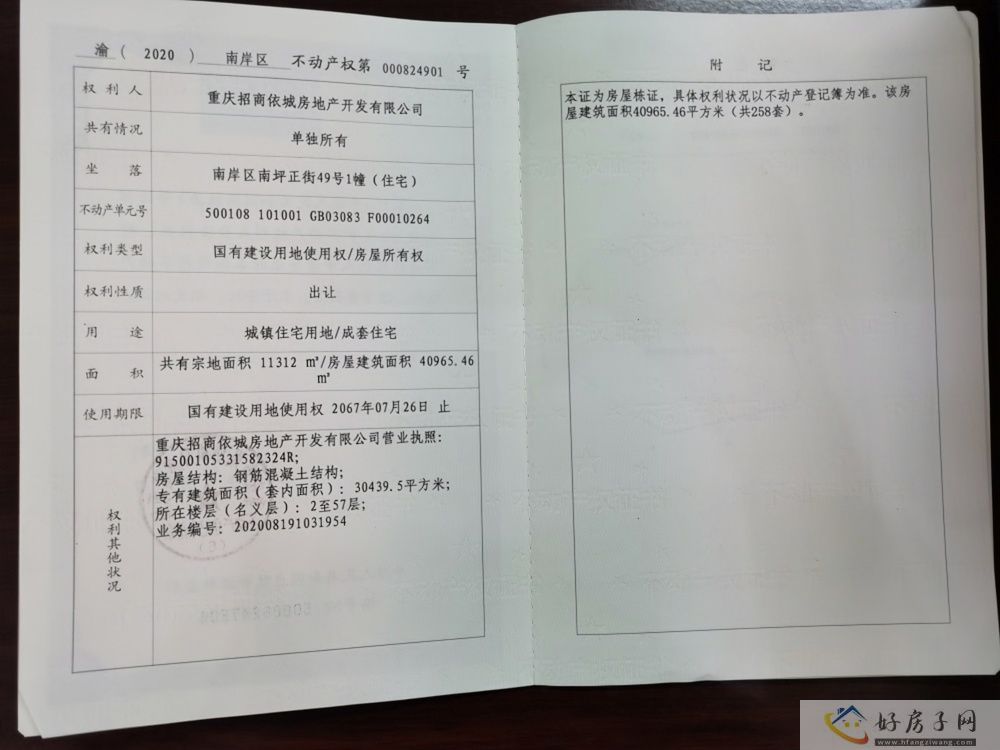 渝( 2020 ) 南岸区 不动产权第 000824901 号
权利人 重庆招商依城房地产开发有限公司
共有情况 单独所有
坐落 南岸区南坪正街49号1幢(住宅)
不动产单元号 500108 101001 GB03083 F00010264
权利类型 国有建设用地使用权/房屋所有权
权利性质 出让
用途 城镇住宅用地/成套住宅
面积 共有宗地面积 11312 ㎡/房屋建筑面积 40965.46
㎡
使用期限 国有建设用地使用权 2067年07月26日 止
权利其他状况
重庆招商依城房地产开发有限公司营业执照:
91500105331582324R;
房屋结构: 钢筋混凝土结构;
专有建筑面积(套内面积): 30439.5平方米;
所在楼层(名义层): 2至57层;
业务编号: 202008191031954
附 记
本证为房屋栋证，具体权利状况以不动产登记簿为准。该房
屋建筑面积40965.46平方米（共258套）。
好房子网
www.hfangziwang.com